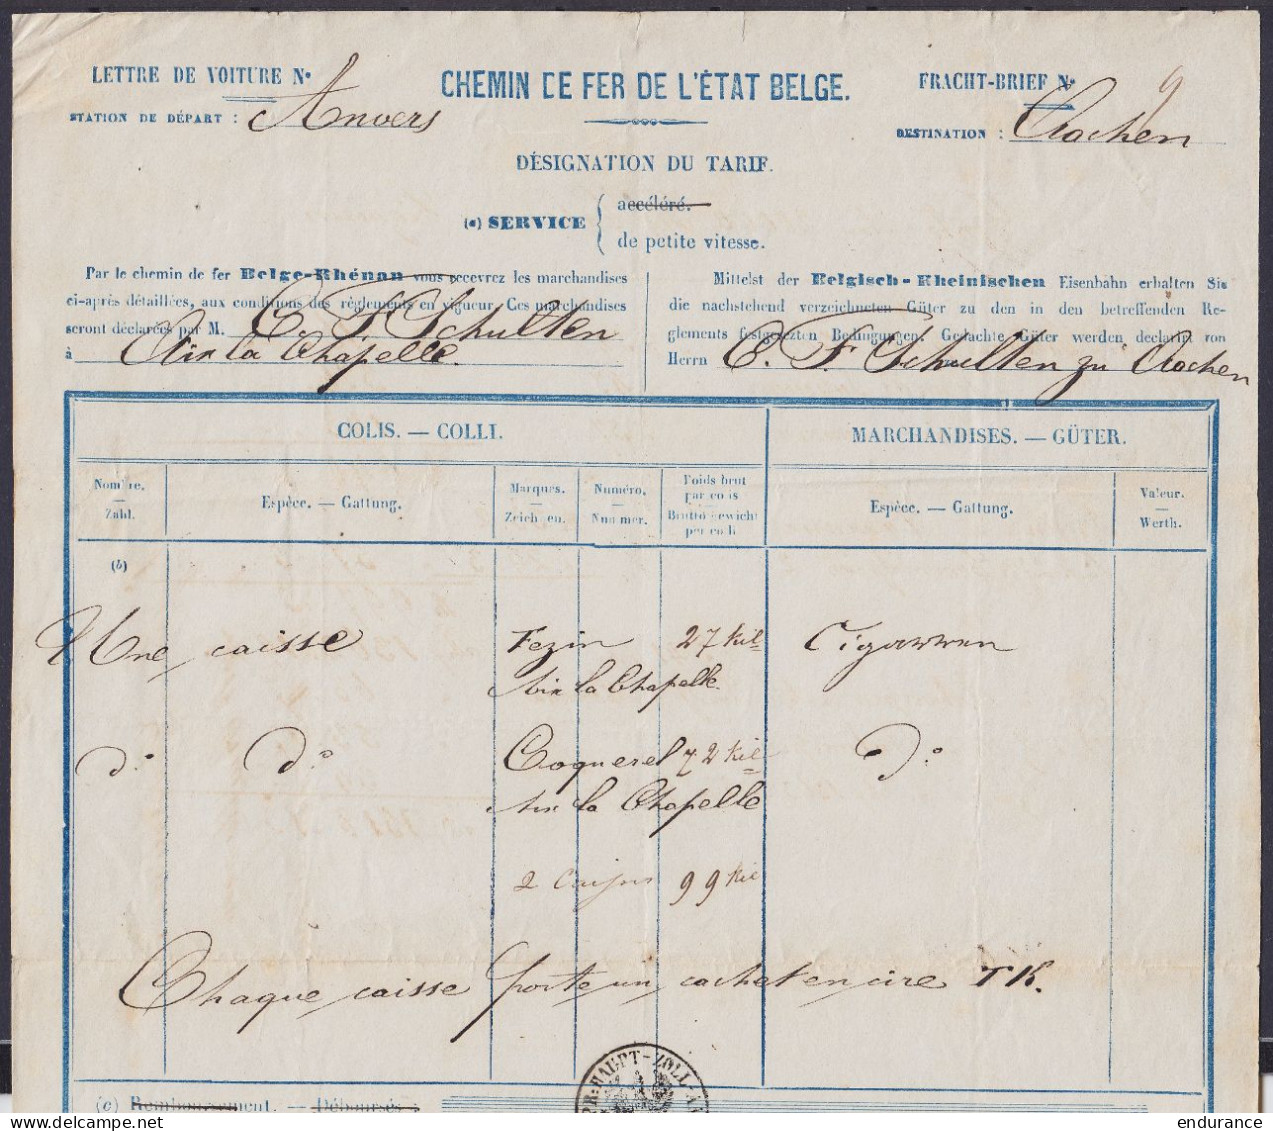 LETTRE DE VOITURE N°
CHEMIN DE FER DE L'ÉTAT BELGE.
FRACHT-BRIEF N° 9
STATION DE DÉPART : Anvers
DESTINATION : Aachen
DÉSIGNATION DU TARIF.
(a) SERVICE
accéléré.
de petite vitesse.
Par le chemin de fer Belge-Rhénan vous recevrez les marchandises
ci-après détaillées, aux conditions des règlements en vigueur. Ces marchandises
seront déclarées par M. C. F. Schulten
à Aix la Chapelle.
Mittelst der Belgisch-Rheinischen Eisenbahn erhalten Sie
die nachstehend verzeichneten Güter zu den in den betreffenden Re-
glements festgesetzten Bedingungen. Gedachte Güter werden declarirt von
Herrn C. F. Schulten zu Aachen
COLIS. — COLLI.
MARCHANDISES. — GÜTER.
Nombre. — Zahl.
Espèce. — Gattung.
Marques. — Zeichen.
Numéro. — Nummer.
Poids brut par colis — Brutto Gewicht per colli
Espèce. — Gattung.
Valeur. — Werth.
(b)
Une caisse Fezin 27 Kil Cigarren
Aix la Chapelle
d° d° Coquerel 72 Kil d°
Aix la Chapelle
2 Caisses 99 Kil
Chaque caisse porte un cachet en cire TK.
PR: HAUPT-ZOLL-A
(c) Remboursement. — Déboursés :
endurance
delcampe.net